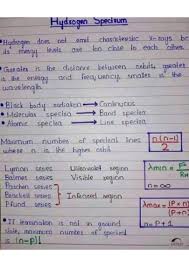 Hydrogen Spectrum
• Hydrogen does not emit characteristic x-rays bc
its energy levels are too close to each other.
• Greater is the distance between orbits, greater
is the energy and frequency, smaller is the
wavelength.
• Black body radiation → Continuous
• Molecular spectra → Band spectra
• Atomic spectra → Line spectra
Maximum number of spectral lines n(n-1)
where n is the higher orbit 2
Lyman series Ultraviolet region λmin =
Balmer series Visible region n=∞
Paschen series
Brackett series Infrared region λmax =
Pfund series n=P+1
• If termination is not in ground
state, maximum number of spectral
is (n-P)